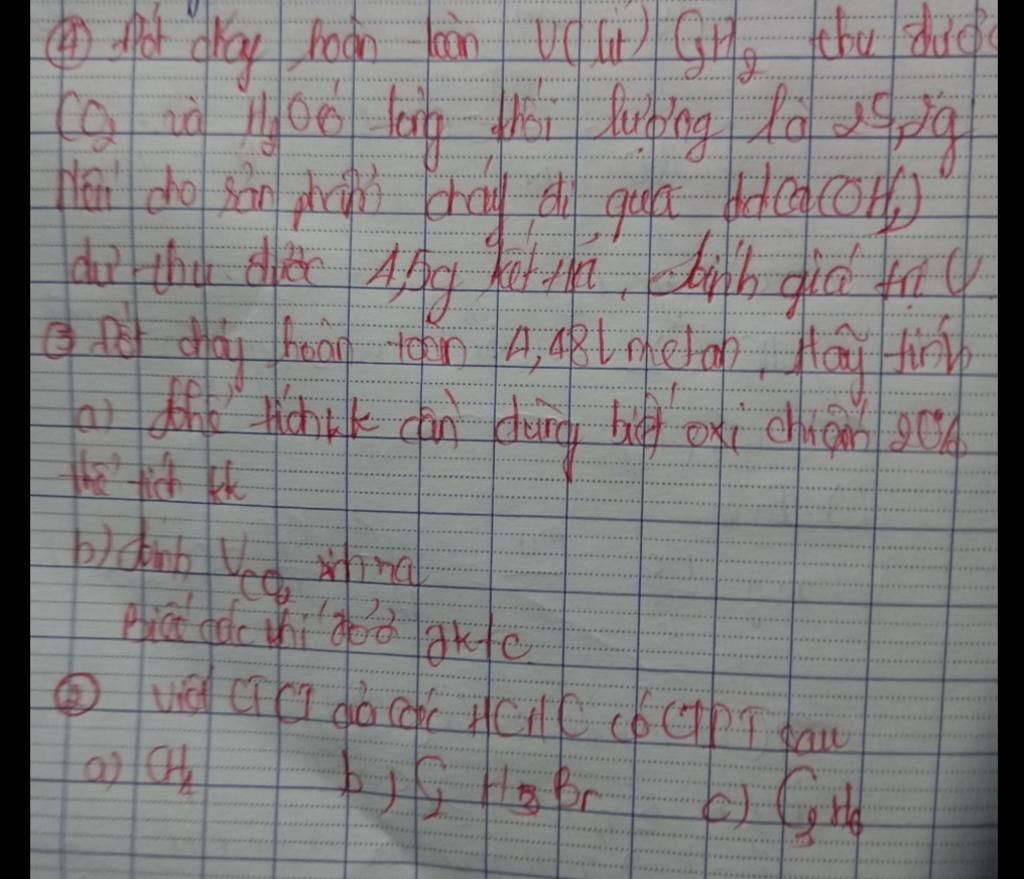 ④ Đốt cháy hoàn toàn V (lít) C2H2 thu được
CO2 và H2O có tổng khối lượng là 25,2g
Nếu cho sản phẩm cháy đi qua ddCa(OH2)
dư thu được 4,5g kết tủa. Tính giá trị V
③ Đốt cháy hoàn toàn 4,48l metan. Hãy tính
a) thể tích kk cần dùng biết oxi chiếm 20%
thể tích kk
b) tính VCO2 sinh ra
Biết các khí đo ở đktc
② Viết CTCT của các HCHC có CTPT sau
a) CH4 b) C H3Br c) C2H6